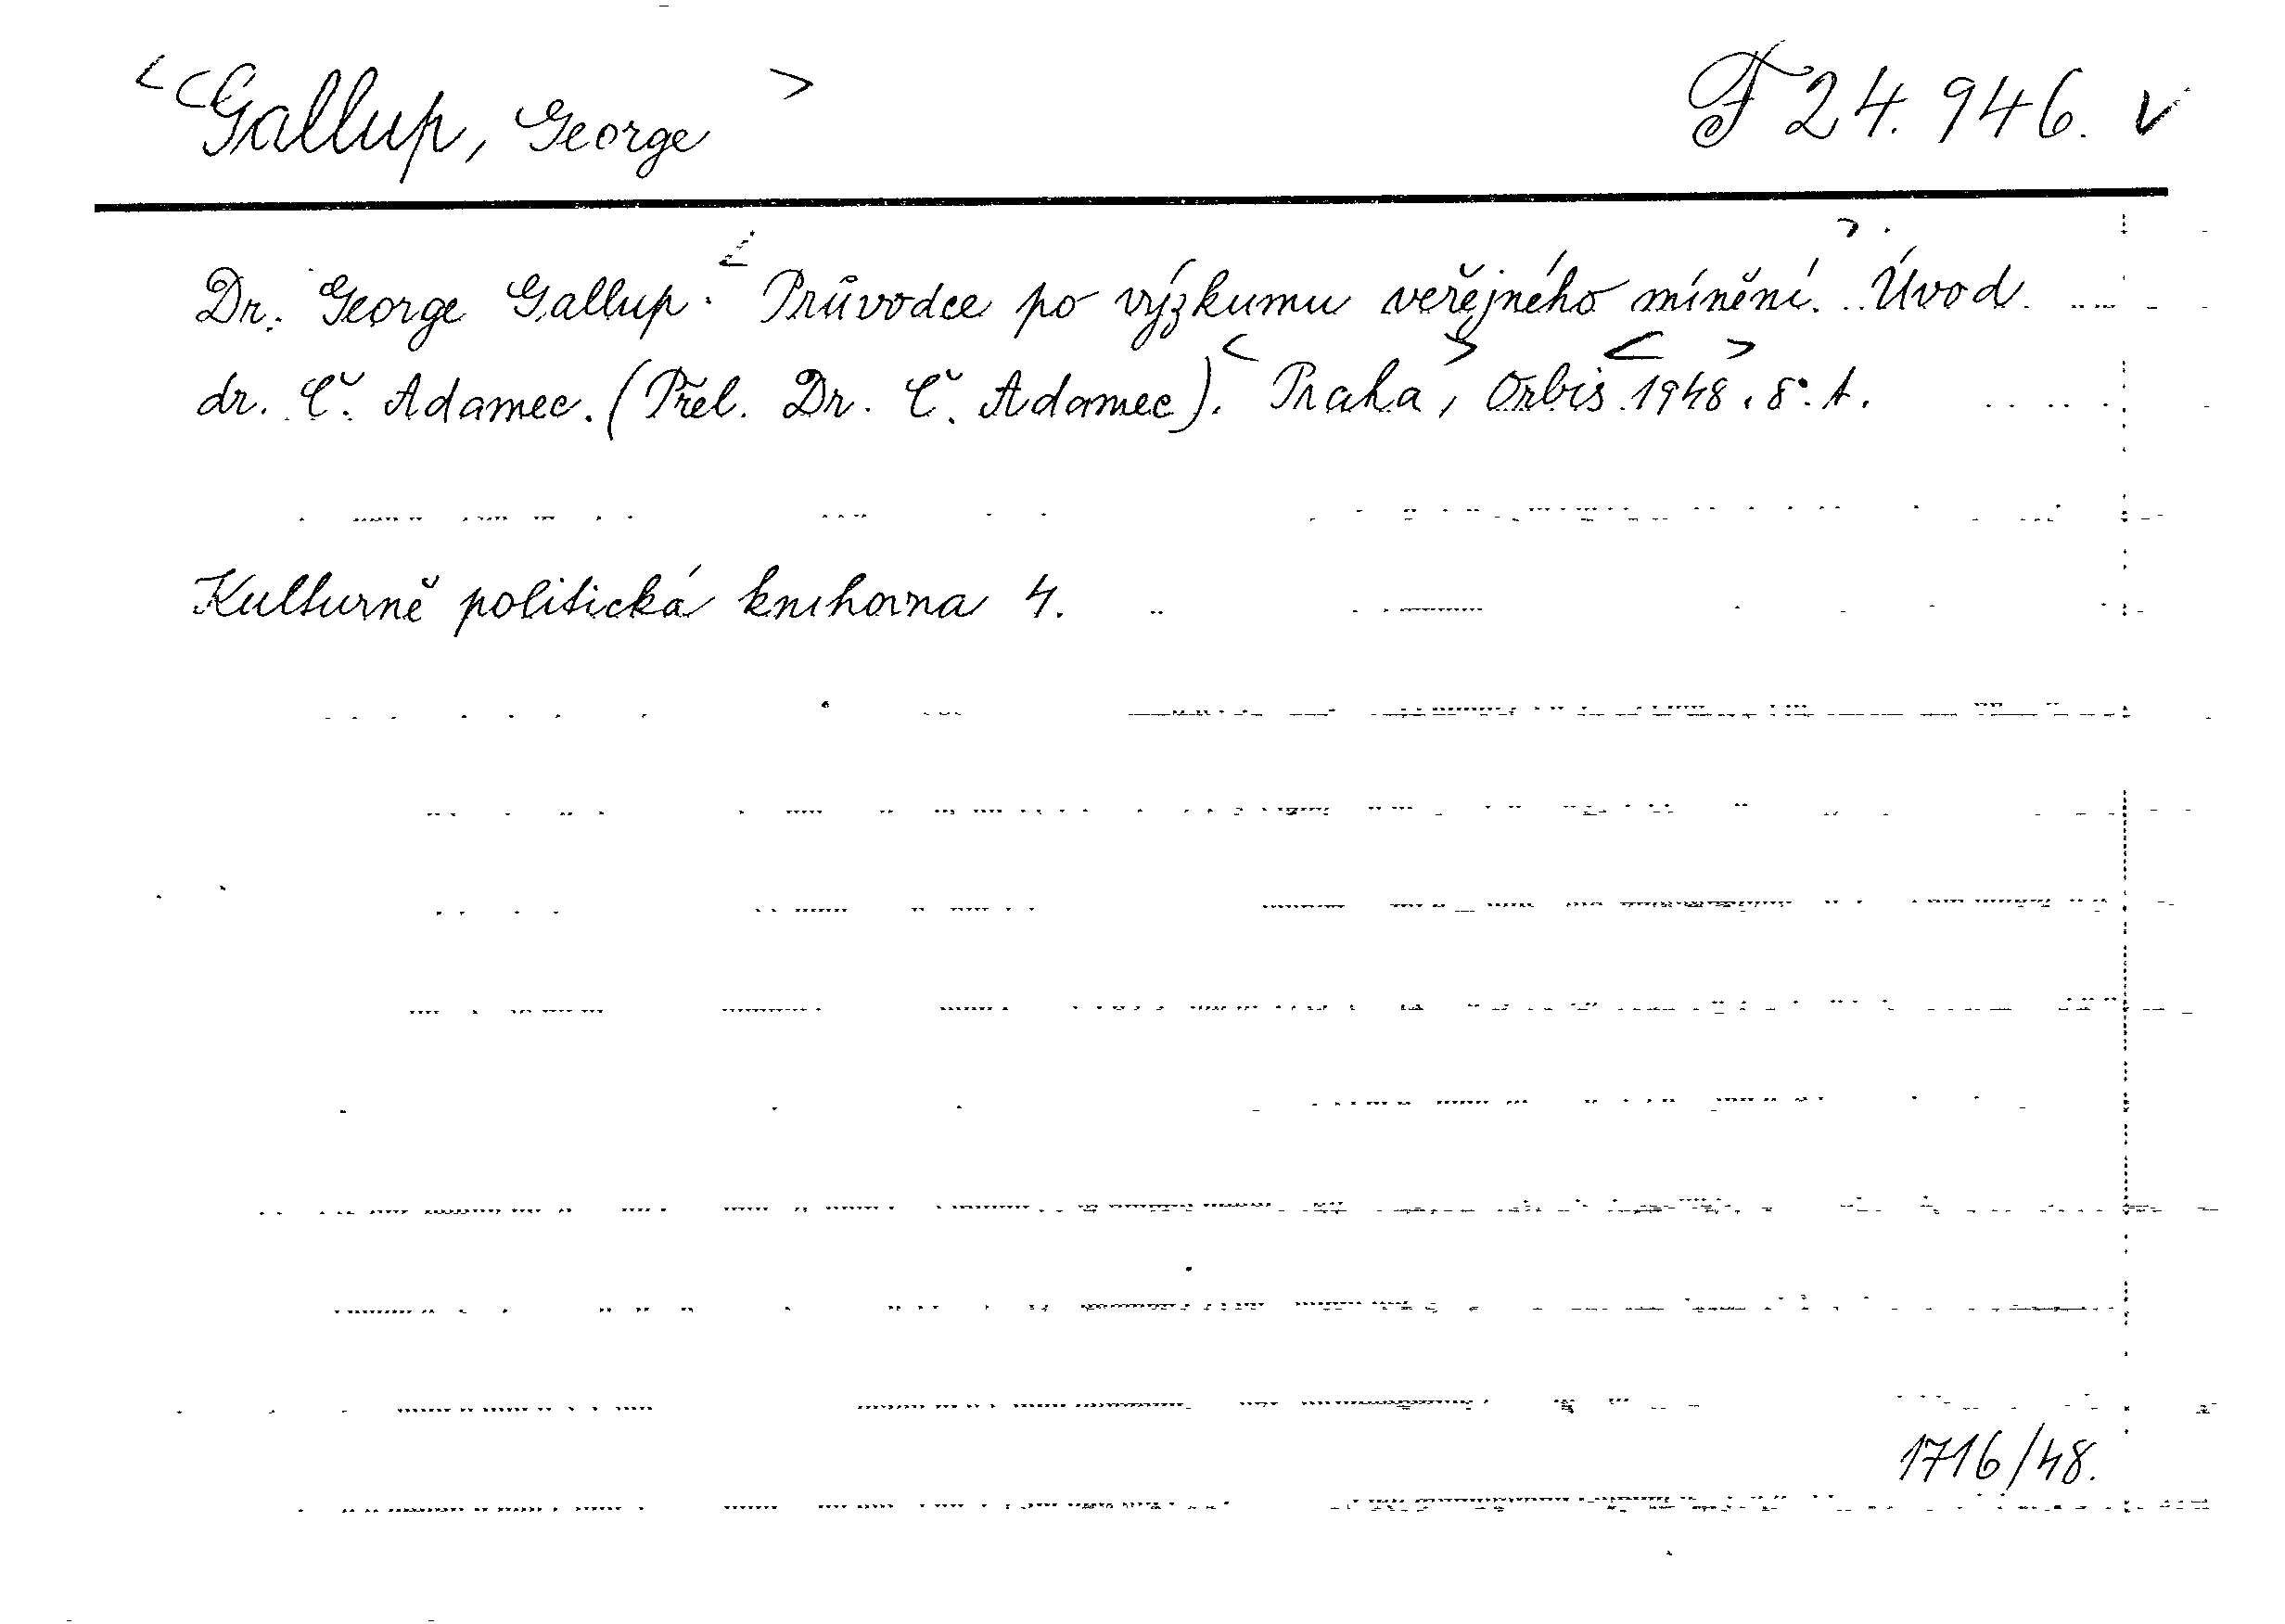 <Gallup, George> F 24.946. v
Dr. George Gallup: <Průvodce po výzkumu veřejného mínění.> Úvod
dr. Č. Adamec. (Přel. Dr. Č. Adamec). <Praha>, Orbis <1948>. 8°. A.
Kulturně politická knihovna 4.
1716/48.